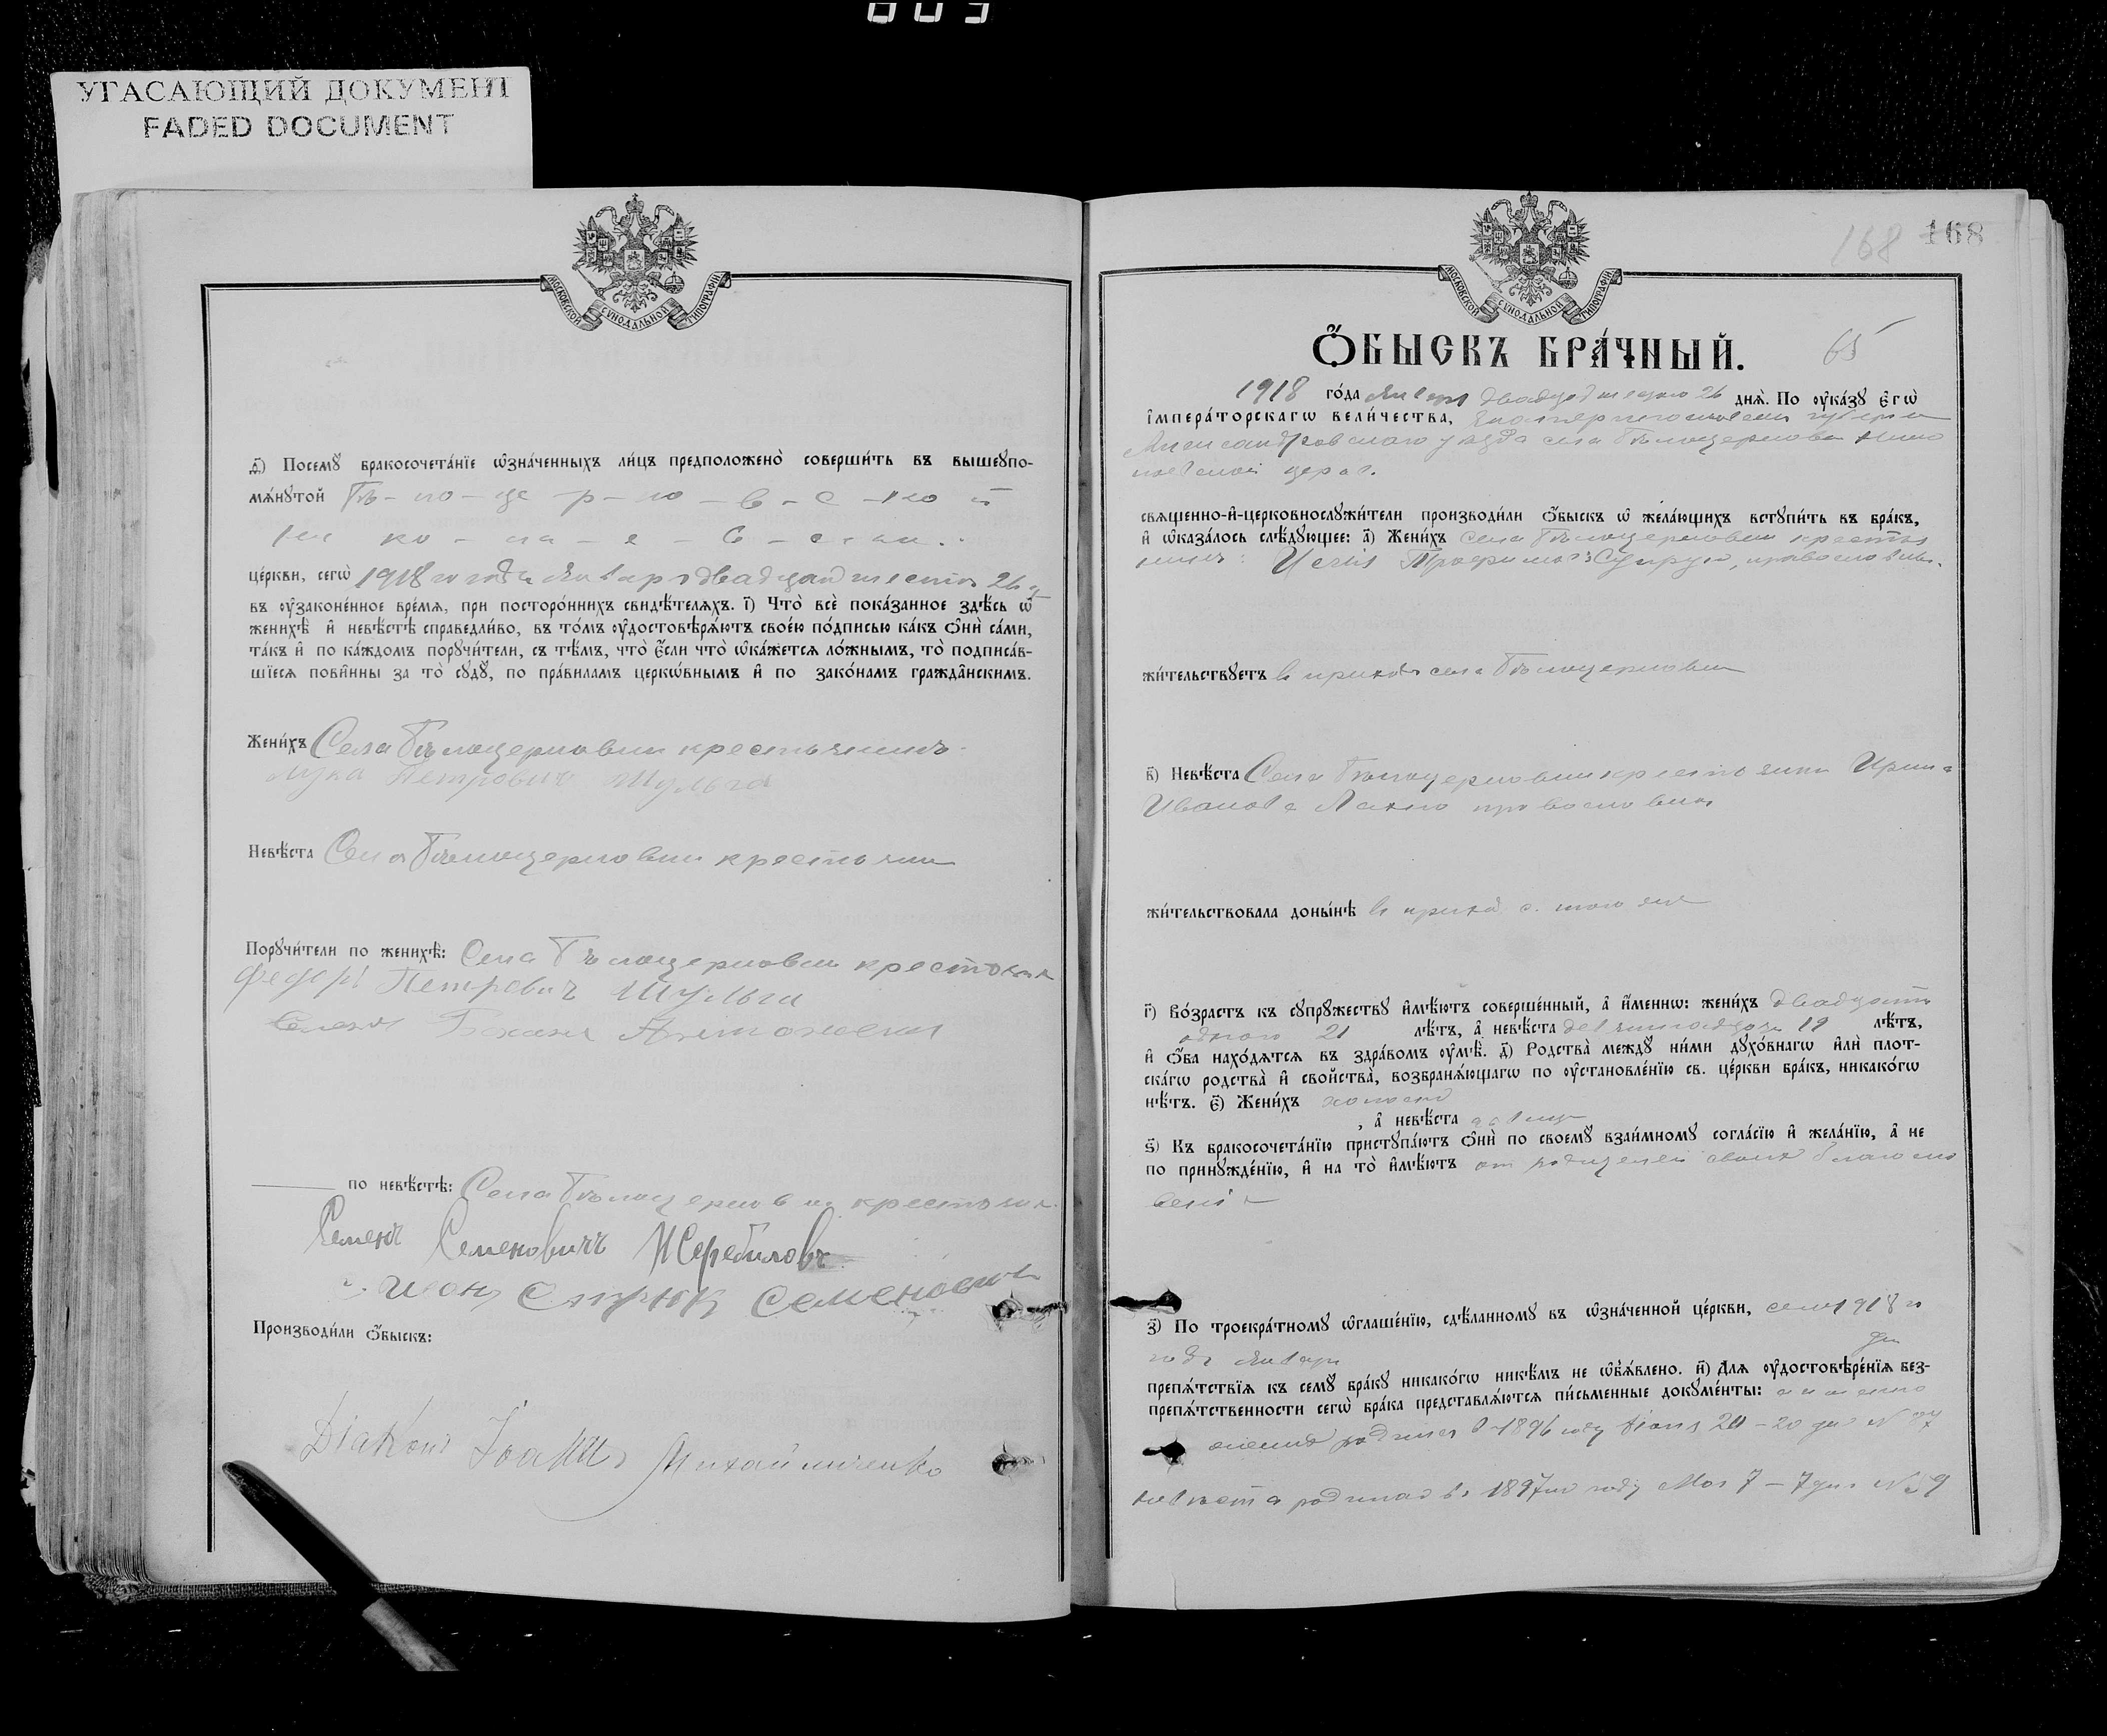 003
УГАСАЮЩИЙ ДОКУМЕНТ
FADED DOCUMENT
МОСКОВСКОЙ СУНОДАЛЬНОЙ ТИПОГРАФІИ
Посемꙋ̀ бракосочета́нїе ѡ҆зна́ченныхъ ли́цъ предположено̀ соверши́ть въ вышеꙋпо-
мѧ́нꙋтой Бѣ-ло-це-р-ко-в-с-ко й
Ни ко-ла-е-в-ской
це́ркви, сегѡ̀ 1918го года Января двадцать шестого 26 д
въ ᲂу҆зако́ненное вре́мѧ, при посторо́ннихъ свидѣ́телѧхъ. і҃) Что̀ всѐ пока́занное здѣ́сь ѡ҆
женихѣ̀ и҆ невѣ́стѣ справедли́во, въ то́мъ ᲂу҆достовѣрѧ́ютъ свое́ю по́дписью ка́къ ѻ҆нѝ са́ми,
та́къ и҆ по ка́ждомъ порꙋчи́тели, съ тѣ́мъ, что̀ є҆́сли что̀ ѡ҆ка́жетсѧ ло́жнымъ, то̀ подписа́в-
шїесѧ пови́нны за то̀ сꙋдꙋ̀, по пра́виламъ церко́внымъ и҆ по зако́намъ гражда́нскимъ.
Жени́хъ Села Бѣлоцерковки крестьянинъ
Лука Петровичъ Шульга
Невѣ́ста Села Бѣлоцерковки крестьянка
Порꙋчи́тели по женихѣ̀: Села Бѣлоцерковки крестьяне
Федоръ Петровичъ Шульга
по невѣ́стѣ: Села Бѣлоцерковки крестьяне
Семенъ Семеновичъ Жеребиловъ
Производи́ли ѻ҆́быскъ:
Діаконъ Іоаннъ Михайличенко
168 168
МОСКОВСКОЙ СУНОДАЛЬНОЙ ТИПОГРАФІИ
Ѻ҆́БЫСКЪ БРА́ЧНЫЙ.
65
1918 го́да Января двадцать шестого 26 днѧ̀. По ᲂу҆ка́зꙋ є҆гѡ̀
і҆мпера́торскагѡ вели́чества, Екатеринославской губернии
Александровскаго уѣзда села Бѣлоцерковки Нико
лаевской церкв.
свѧще́нно-и҆-церковнослꙋжи́тели производи́ли ѻ҆́быскъ ѡ҆ жела́ющихъ встꙋпи́ть въ бра́къ,
и҆ ѡ҆каза́лось слѣ́дꙋющее: а҃) Жени́хъ села Бѣлоцерковки крестья
нинъ: Трофимовъ Супрун, православн.
жи́тельствꙋетъ в приходѣ села Бѣлоцерковки
в҃) Невѣ́ста Села Бѣлоцерковки крестьянка Ирина
Иванова Лахно православная
жи́тельствовала доны́нѣ в приход. с. того же
г҃) Во́зрастъ къ сꙋпрꙋ́жествꙋ и҆мѣ́ютъ соверше́нный, а҆ и҆́меннѡ: жени́хъ двадцать
одного 21 лѣ́тъ, а҆ невѣ́ста девятнадцати 19 лѣ́тъ,
и҆ ѻ҆́ба нахо́дѧтсѧ въ здра́вомъ ᲂу҆мѣ̀. д҃) Родства̀ междꙋ̀ ни́ми дꙋхо́внагѡ и҆лѝ плот-
ска́гѡ родства̀ и҆ сво́йства̀, возбранѧ́ющагѡ по ᲂу҆становле́нїю св. це́ркви бра́къ, никако́гѡ
нѣ́тъ. є҃) Жени́хъ холостъ
, а҆ невѣ́ста девица
ѕ҃) Къ бракосочета́нїю пристꙋпа́ютъ ѻ҆нѝ по своемꙋ̀ взаи́мномꙋ согла́сїю и҆ жела́нїю, а҆ не
по принꙋжде́нїю, и҆ на то̀ и҆мѣ́ютъ от родителей своих благосло
вение
з҃) По троекра́тномꙋ ѡ҆глаше́нїю, сдѣ́ланномꙋ въ ѡ҆зна́ченной це́ркви, сего 1918 го
года Января дня
препѧ́тствїѧ къ семꙋ̀ бра́кꙋ никако́гѡ никѣ́мъ не ѡ҆б̾ѧ́влено. и҃) Длѧ ᲂу҆достовѣре́нїѧ без-
препѧ́тственности сегѡ̀ бра́ка представлѧ́ютсѧ пи́сьменные докꙋме́нты: а именно
жених родился в 1896 году 20 – 20 дня №
невѣста родилась въ 1897го году Мая 7 – 7 дня № 59